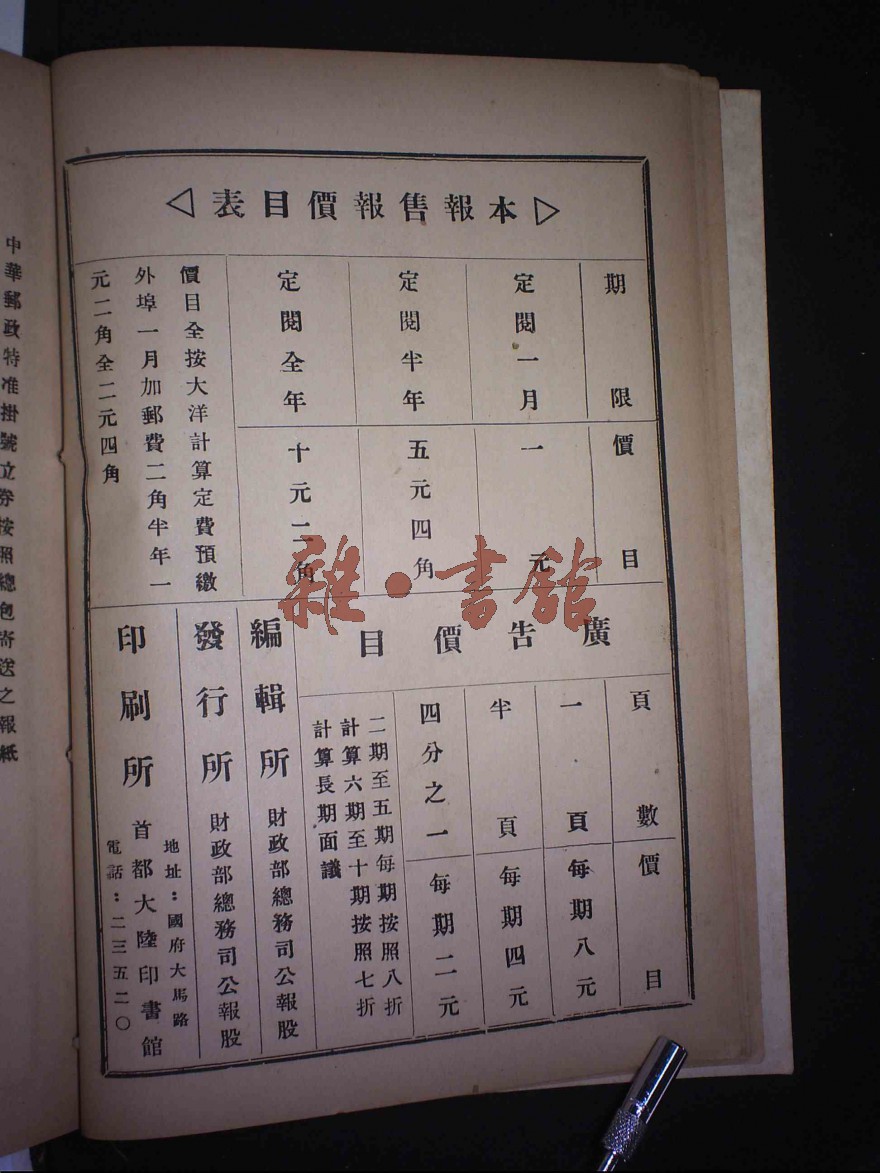 本報售報價目表
期限
價目
定閱一月
一元
定閱半年
五元四角
定閱全年
十元二角
價目全按大洋計算定費預繳
外埠一月加郵費二角半年一
元二角全二元四角
廣告價目
頁數
價目
一頁
每期八元
半頁
每期四元
四分之一
每期二元
二期至五期每期按照八折
計算六期至十期按照七折
計算長期面議
編輯所
財政部總務司公報股
發行所
財政部總務司公報股
印刷所
地址：國府大馬路
首都大陸印書館
電話：二三五二〇
中華郵政特准掛號立券按照總包寄送之報紙
雜·書館